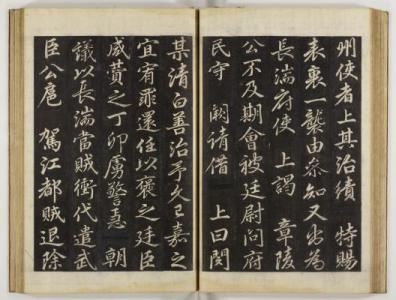 州使者上其治績 特賜
表裏一襲由參知又出為
長湍府使 上謁 章陵
公不及期會被廷尉問府
民守 闕請借 上曰閔
某清白善治予久已嘉之
宜宥罪還任以褒之廷臣
咸之丁卯虜警急 朝
議以長湍當賊衝代遣武
臣公扈 駕江都賊退除